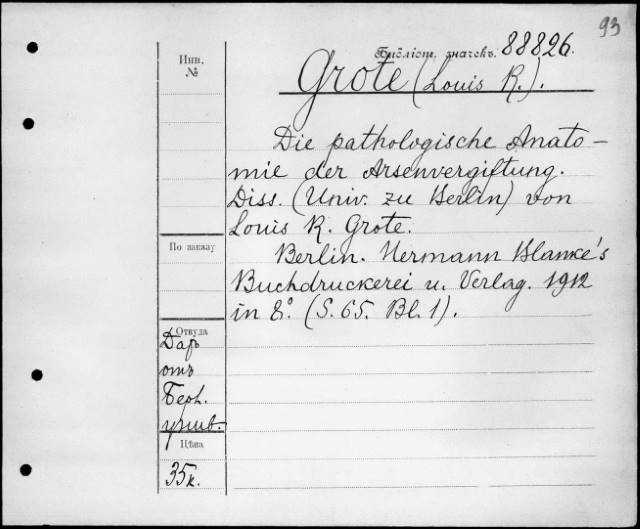 93
Библіот. значекъ. 88826.
Инв.
№
Grote (Louis R.).
Die pathologische Anato-
mie der Arsenvergiftung.
Diss. (Univ. zu Berlin) von
Louis R. Grote.
По заказу
Berlin. Hermann Blanke's
Buchdruckerei u. Verlag. 1912
in 8º. (S. 65. Bl. 1).
Откуда
Даръ
отъ
Берл.
унив.
Цѣна
35к.